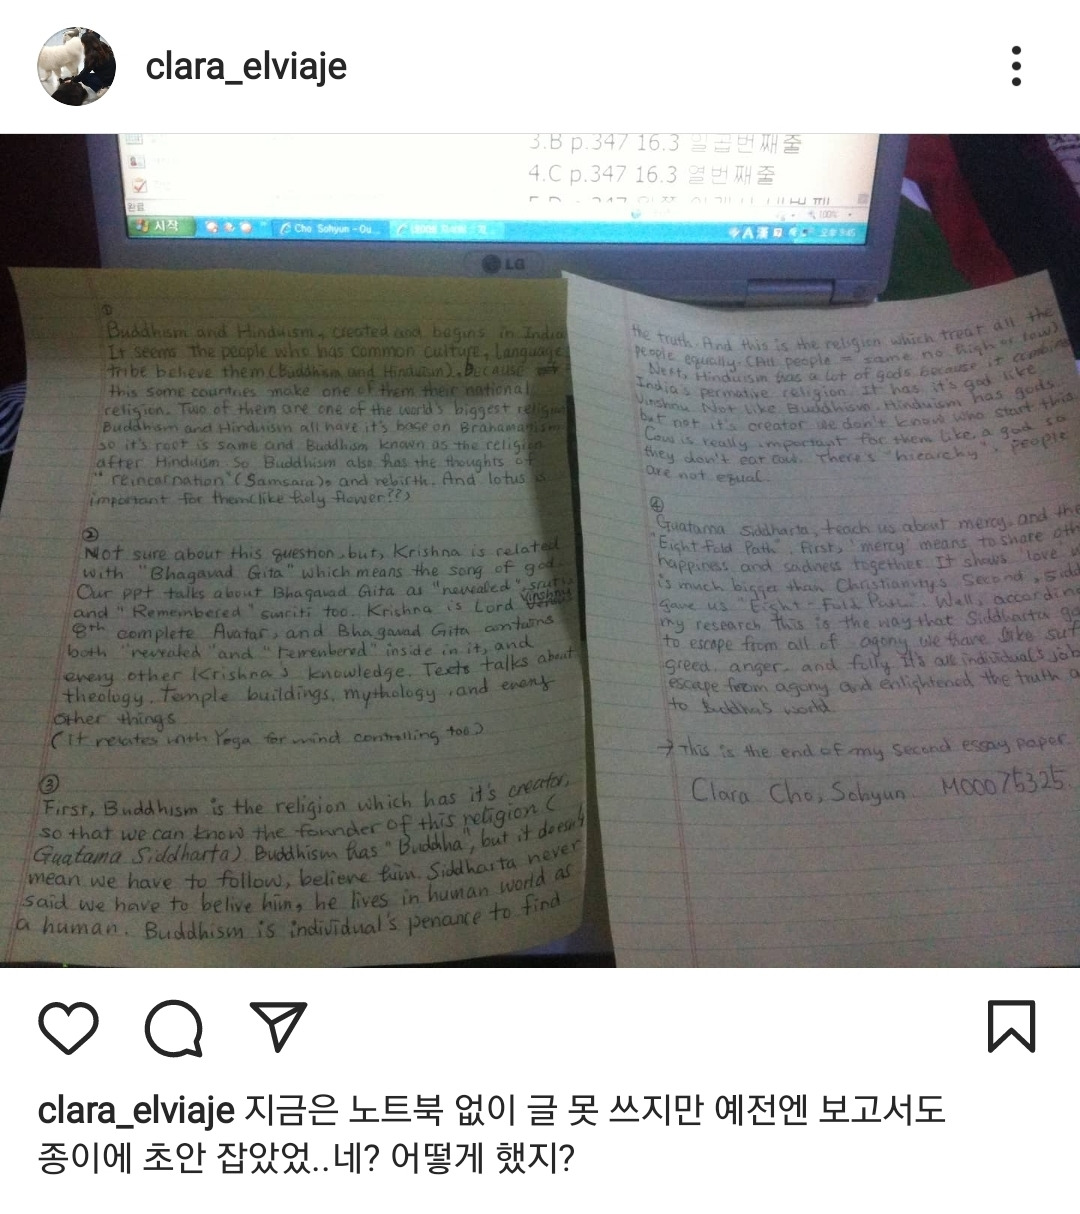 clara_elviaje
3.B p.347 16.3 일곱번째줄
4.C p.347 16.3 열번째줄
완료
시작
Cho Sohyun - Ou...
100%
LG
①
Buddhism and Hinduism, created and begins in India
It seems the people who has common culture, Language
tribe believe them (Buddhism and Hinduism). Because
this some countries make one of them their national
religion. Two of them are one of the world's biggest religion
Buddhism and Hinduism all have it's base on Brahamanism
so it's root is same and Buddhism known as the religion
after Hinduism. So Buddhism also has the thoughts of
"reincarnation" (Samsara), and rebirth. And lotus
important for them(like holy flower??)
②
Not sure about this question, but, Krishna is related
with "Bhagavad Gita" which means the song of god.
Our ppt talks about Bhagavad Gita as "revealed"
and "Remembered" smriti too. Krishna is Lord Vinshnu
8th complete Avatar, and Bhagavad Gita contains
both "revealed" and "remembered" inside in it, and
every other Krishna's knowledge. Texts talks about
theology, Temple buildings, mythology, and every
other things
(It relates with Yoga for mind controlling too.)
③
First, Buddhism is the religion which has it's creator,
so that we can know the founder of this religion (
Guatama Siddharta). Buddhism has "Buddha", but it doesn't
mean we have to follow, believe him. Siddharta never
said we have to belive him, he lives in human world as
a human. Buddhism is individual's penance to find
the truth. And this is the religion which treat all the
people equally. (All people = same no high or low)
Next, Hinduism has a lot of gods because it combine
India's permative religion. It has it's god like
Vinshnu. Not like Buddhism, Hinduism has gods
but not it's creator we don't know who start this.
Cow is really important for them like a god so
they don't eat cow. There's "hiearchy", people
are not equal.
④
Guatama Siddharta, teach us about mercy, and the
"Eight Fold Path". First, 'mercy' means to share oth
happiness and sadness together. It shows 'love
is much bigger than Christianity's. Second, Sidd
gave us "Eight-Fold Path". Well, according
my research this is the way that Siddharta ga
to escape from all of agony we have like suf
greed, anger, and folly. It's all individual's job
escape from agony and enlightened the truth a
to Buddha's world.
→ This is the end of my second essay paper.
Clara Cho, Sohyun M00075325.
clara_elviaje 지금은 노트북 없이 글 못 쓰지만 예전엔 보고서도
종이에 초안 잡았었..네? 어떻게 했지?